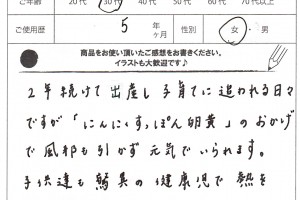 ご年齢 20代 30代 40代 50代 60代 70代以上
ご使用歴 5 年 ヶ月 性別 女・男
商品をお使い頂いたご感想をお書きください。
イラストも大歓迎です♪
2年続けて出産し子育てに追われる日々
ですが「にんにくすっぽん卵黄」のおかげ
で風邪も引かず元気でいられます。
子供達も the 健康児で熱を